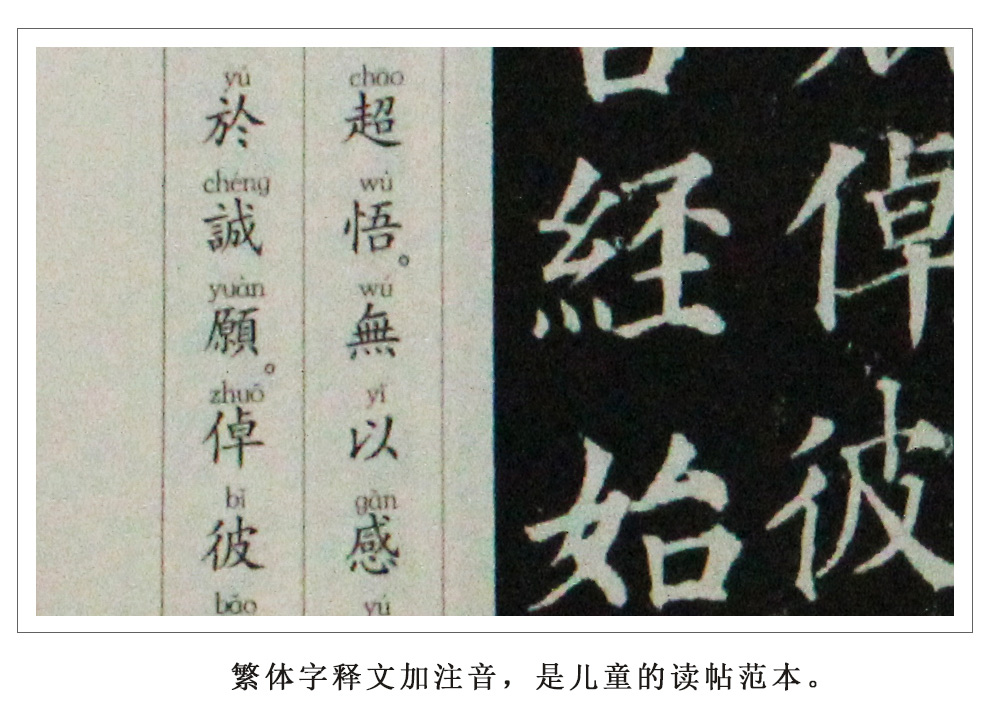 倬彼
経始
chāo 超 wù 悟。 wú 無 yǐ 以 gǎn 感 yú
yú 於 chéng 誠 yuàn 願。 zhuō 倬 bǐ 彼 bǎo
繁体字释文加注音，是儿童的读帖范本。